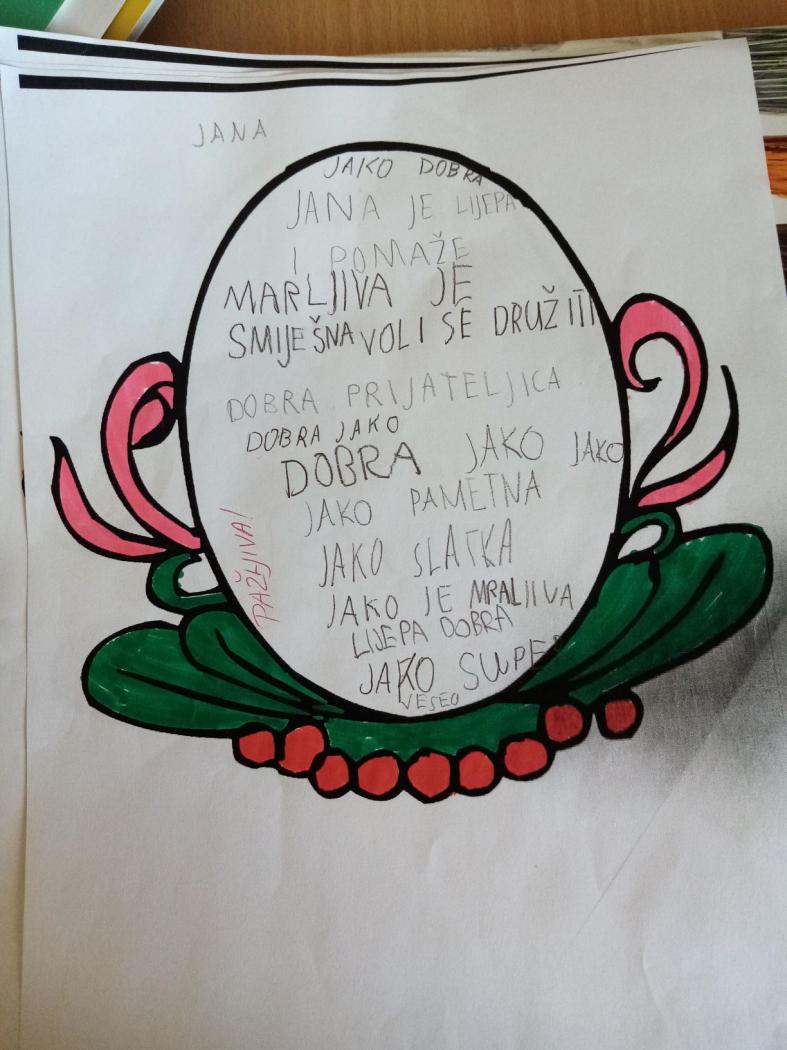 JANA
JAKO DOBRA
JANA JE LIJEPA
I POMAŽE
MARLJIVA JE
SMIJEŠNA VOLI SE DRUŽITI
DOBRA PRIJATELJICA
DOBRA JAKO
DOBRA JAKO JAKO
JAKO PAMETNA
JAKO SLATKA
JAKO JE MRALJIVA
LIJEPA DOBRA
JAKO SUPER
VESEO
PAŽLJIVA!